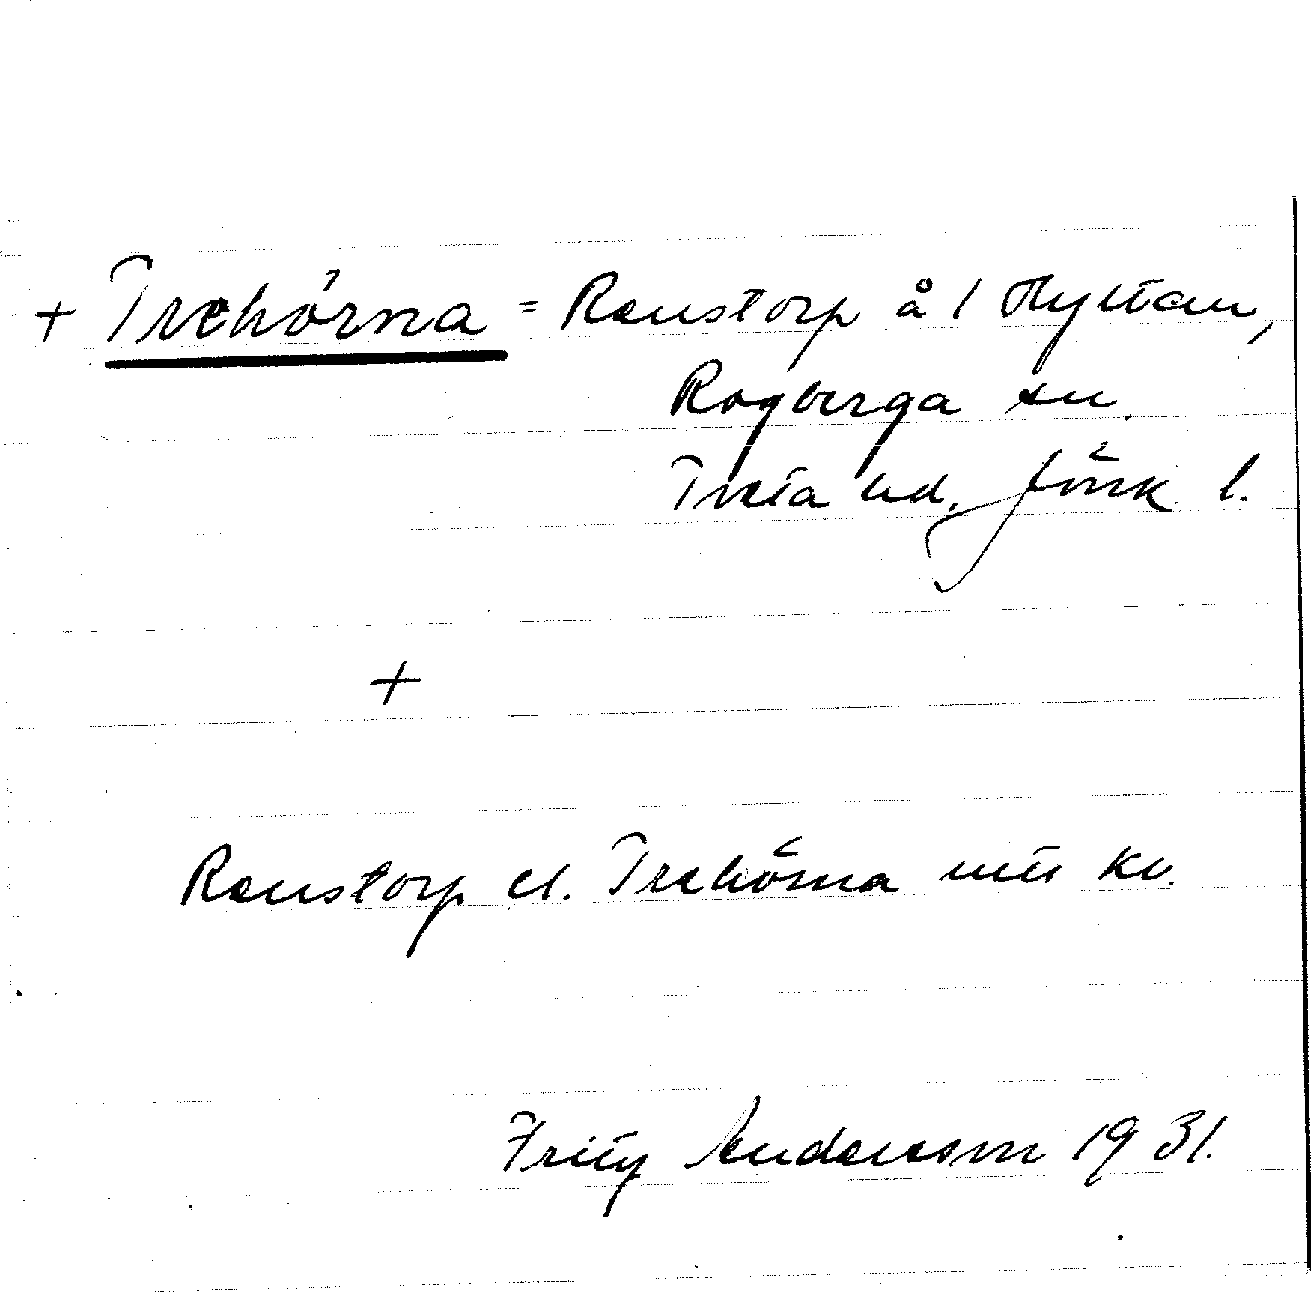 + Trehörna = Ranstorp å 1 Hyltan,
Rogberga sn.
Tveta hd, Jönk l.
+
Ranstorp el. Trehörna utu kv.
Fritz Andersson 1931.